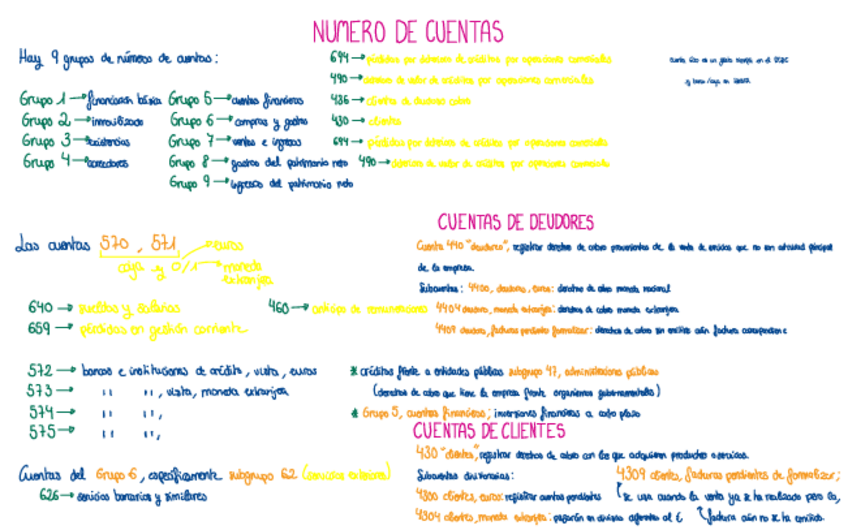 NUMERO DE CUENTAS
Hay 9 grupos de números de cuentas:
Grupo 1 → financiación básica
Grupo 2 → inmovilizado
Grupo 3 → existencias
Grupo 4 → acreedores
Grupo 5 → cuentas financieras
Grupo 6 → compras y gastos
Grupo 7 → ventas e ingresos
Grupo 8 → gastos del patrimonio neto
Grupo 9 → ingresos del patrimonio neto
694 → pérdidas por deterioro de créditos por operaciones comerciales
490 → deterioro de valor de créditos por operaciones comerciales
436 → clientes de dudoso cobro
430 → clientes
694 → pérdidas por deterioro de créditos por operaciones comerciales
490 → deterioro de valor de créditos por operaciones comerciales
Las cuentas 570, 571
caja y 0/1 → euros
→ moneda extranjera
640 → sueldos y salarios
460 → anticipo de remuneraciones
659 → pérdidas en gestión corriente
572 → bancos e instituciones de crédito, vista, euros
573 → " ", vista, moneda extranjera
574 → " ",
575 → " ",
Cuentas del Grupo 6, específicamente subgrupo 62 (servicios exteriores)
626 → servicios bancarios y similares
CUENTAS DE DEUDORES
Cuenta 440 "deudores", registrar derechos de cobro provenientes de la venta de servicios que no son actividad principal
de la empresa.
Subcuentas: 4400, deudores, euros: derechos de cobro moneda nacional
4404 deudores, moneda extranjera: derechos de cobro moneda extranjera
4409 deudores, facturas pendientes formalizar: derechos de cobro sin emitirse aún factura correspondiente
* créditos frente a entidades públicas subgrupo 47, administraciones públicas
(derechos de cobro que tiene la empresa frente organismos gubernamentales)
* Grupo 5, cuentas financieras; inversiones financieras a corto plazo
CUENTAS DE CLIENTES
430 "clientes", registrar derechos de cobro con los que adquieren productos o servicios.
Subcuentas divisionarias:
4300 clientes, euros: registrar cuentas pendientes
4304 clientes, moneda extranjera: pagarán en divisas diferentes al €
4309 clientes, facturas pendientes de formalizar;
se usa cuando la venta ya se ha realizado pero la,
factura aún no se ha emitido.